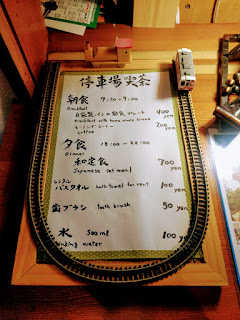 停車場喫茶
朝食 7:30-9:00
Breakfast
自家製パンの朝食プレート 400 yen
Breakfast with home made bread
モーニングコーヒー 200 yen
coffee
夕食 18:00-22:00
Dinner
和定食 700 yen
Japanese set meal
レンタル
バスタオル bath towel for rent 100 yen
歯ブラシ tooth brush 50 yen
水 500ml 100 yen
drinking water